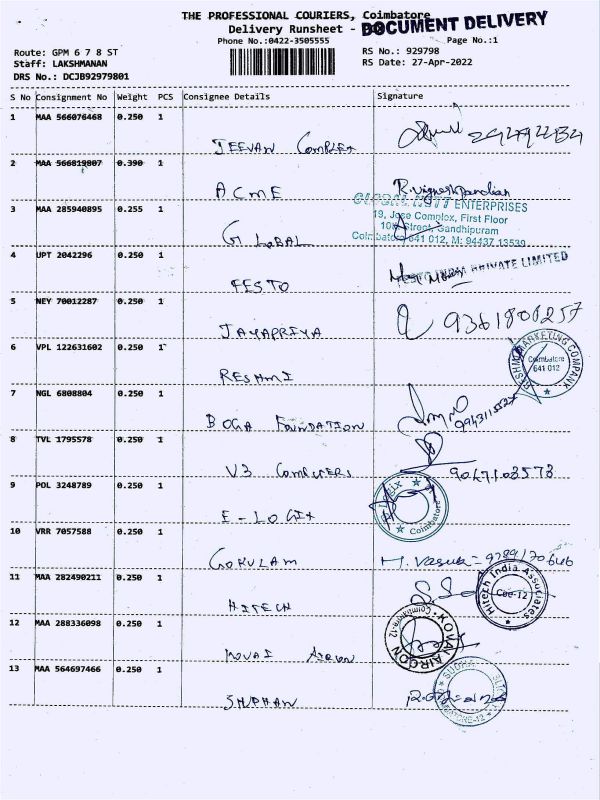 THE PROFESSIONAL COURIERS, Coimbatore
Delivery Runsheet - DOX
DOCUMENT DELIVERY
Phone No.:0422-3505555 Page No.:1
Route: GPM 6 7 8 ST RS No.: 929798
Staff: LAKSHMANAN RS Date: 27-Apr-2022
DRS No.: DCJB92979801
S No Consignment No Weight PCS Consignee Details Signature
1 MAA 566076468 0.250 1
JEEVAN Complex
2 MAA 566819807 0.390 1
ACME R.Vignesh Pandian
3 MAA 285940895 0.255 1
GLOBAL
GLOBAL NETT ENTERPRISES
19, Jose Complex, First Floor
Street, Gandhipuram
Coimbatore 641 012, M: 94437 13539
4 UPT 2042296 0.250 1
FESTO
FESTO INDIA PRIVATE LIMITED
5 NEY 70012287 0.250 1
JAYAPRIYA 9361806257
6 VPL 122631602 0.250 1
RESHMI
RESHMI MARKETING COMPANY
Coimbatore
641 012
7 NGL 6808804 0.250 1
BOGA FOUNDATION
8 TVL 1795578 0.250 1
V3 COMPUTERS 9047103573
9 POL 3248789 0.250 1
E-LOGIX
Coimbatore
10 VRR 7057588 0.250 1
GOKULAM
11 MAA 282490211 0.250 1
HITECH
Hitech India Associates
Cbe-12
12 MAA 288336098 0.250 1
KOVAI AIRCON
KOVAI AIRCON
Coimbatore-12
13 MAA 564697466 0.250 1